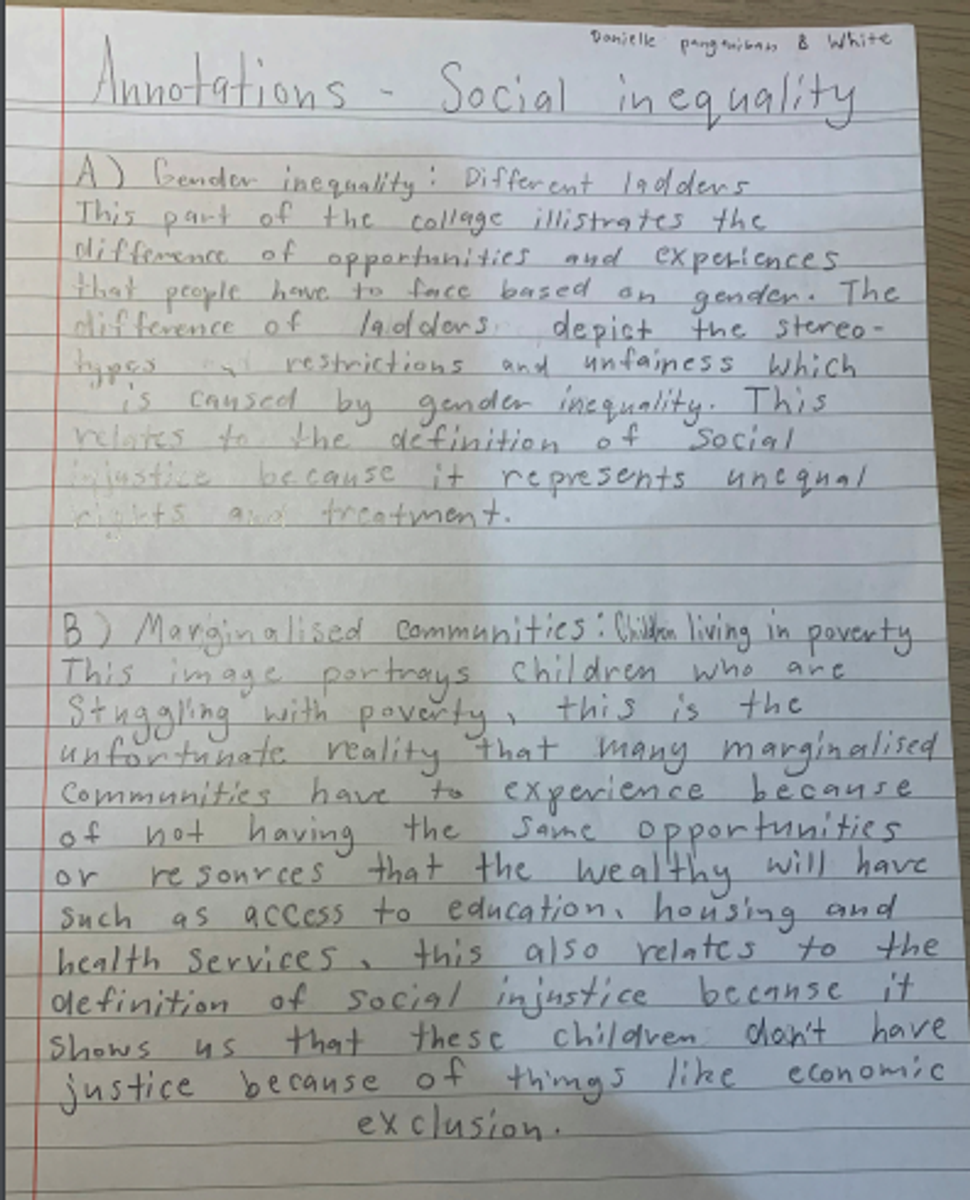 Danielle panganiban 8 White
Annotations - Social inequality
A) Gender inequality: Different ladders
This part of the collage illistrates the
difference of opportunities and experiences
that people have to face based on gender. The
difference of ladders depict the stereo-
types restrictions and unfairness which
is caused by gender inequality. This
relates to the definition of social
injustice because it represents unequal
rights and treatment.
B) Marginalised communities: Children living in poverty
This image portrays children who are
Stuggling with poverty, this is the
unfortunate reality that many marginalised
communities have to experience because
of not having the same opportunities
or resources that the wealthy will have
such as access to education, housing and
health services, this also relates to the
definition of social injustice because it
shows us that these children don't have
justice because of things like economic
exclusion.